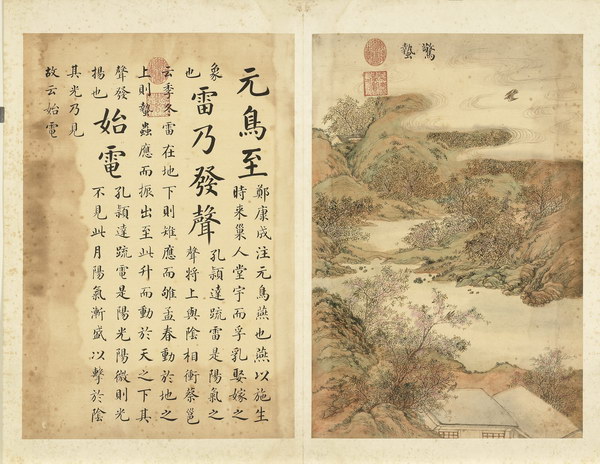 驚蟄
元鳥至
鄭康成注元鳥燕也燕以施生
時來巢人堂宇而孚乳娶嫁之
象
也
雷乃發聲
孔穎達疏雷是陽氣之
聲將上與陰相衝蔡邕
云季冬雷在地下則雉應而雊孟春動於地之
上則蟄蟲應而振出至此升而動於天之下其
聲發
揚也
始電
孔穎達疏電是陽光陽微則光
不見此月陽氣漸盛以擊於陰
其光乃見
故云始電